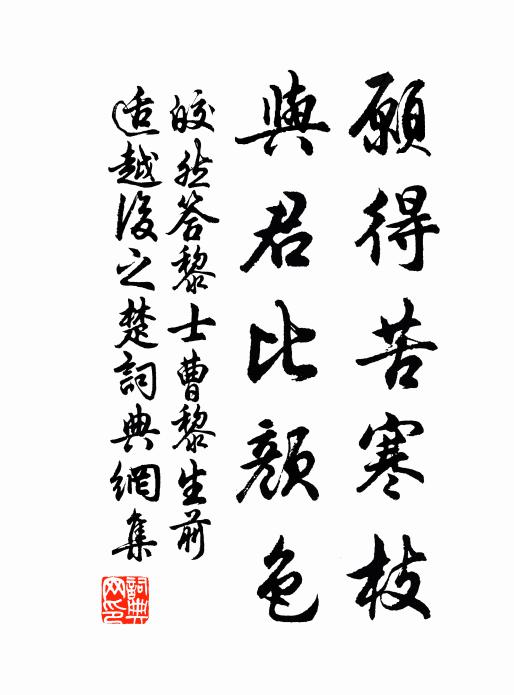 願得苦寒枝
與君比顏色
皎然答黎士曹黎生前
适越後之楚詞典網集
詞典网印